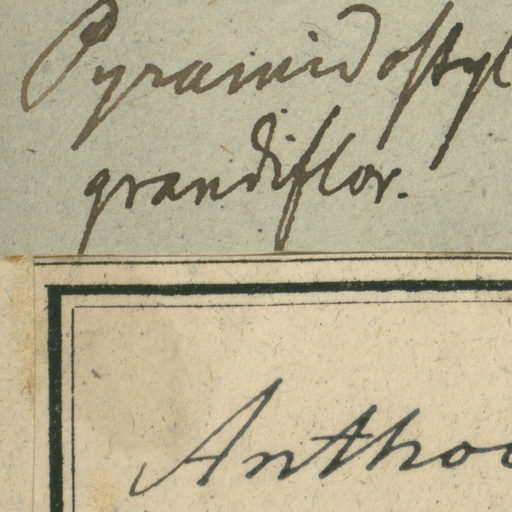 Pyramidostyl
grandiflor.
Anthoc